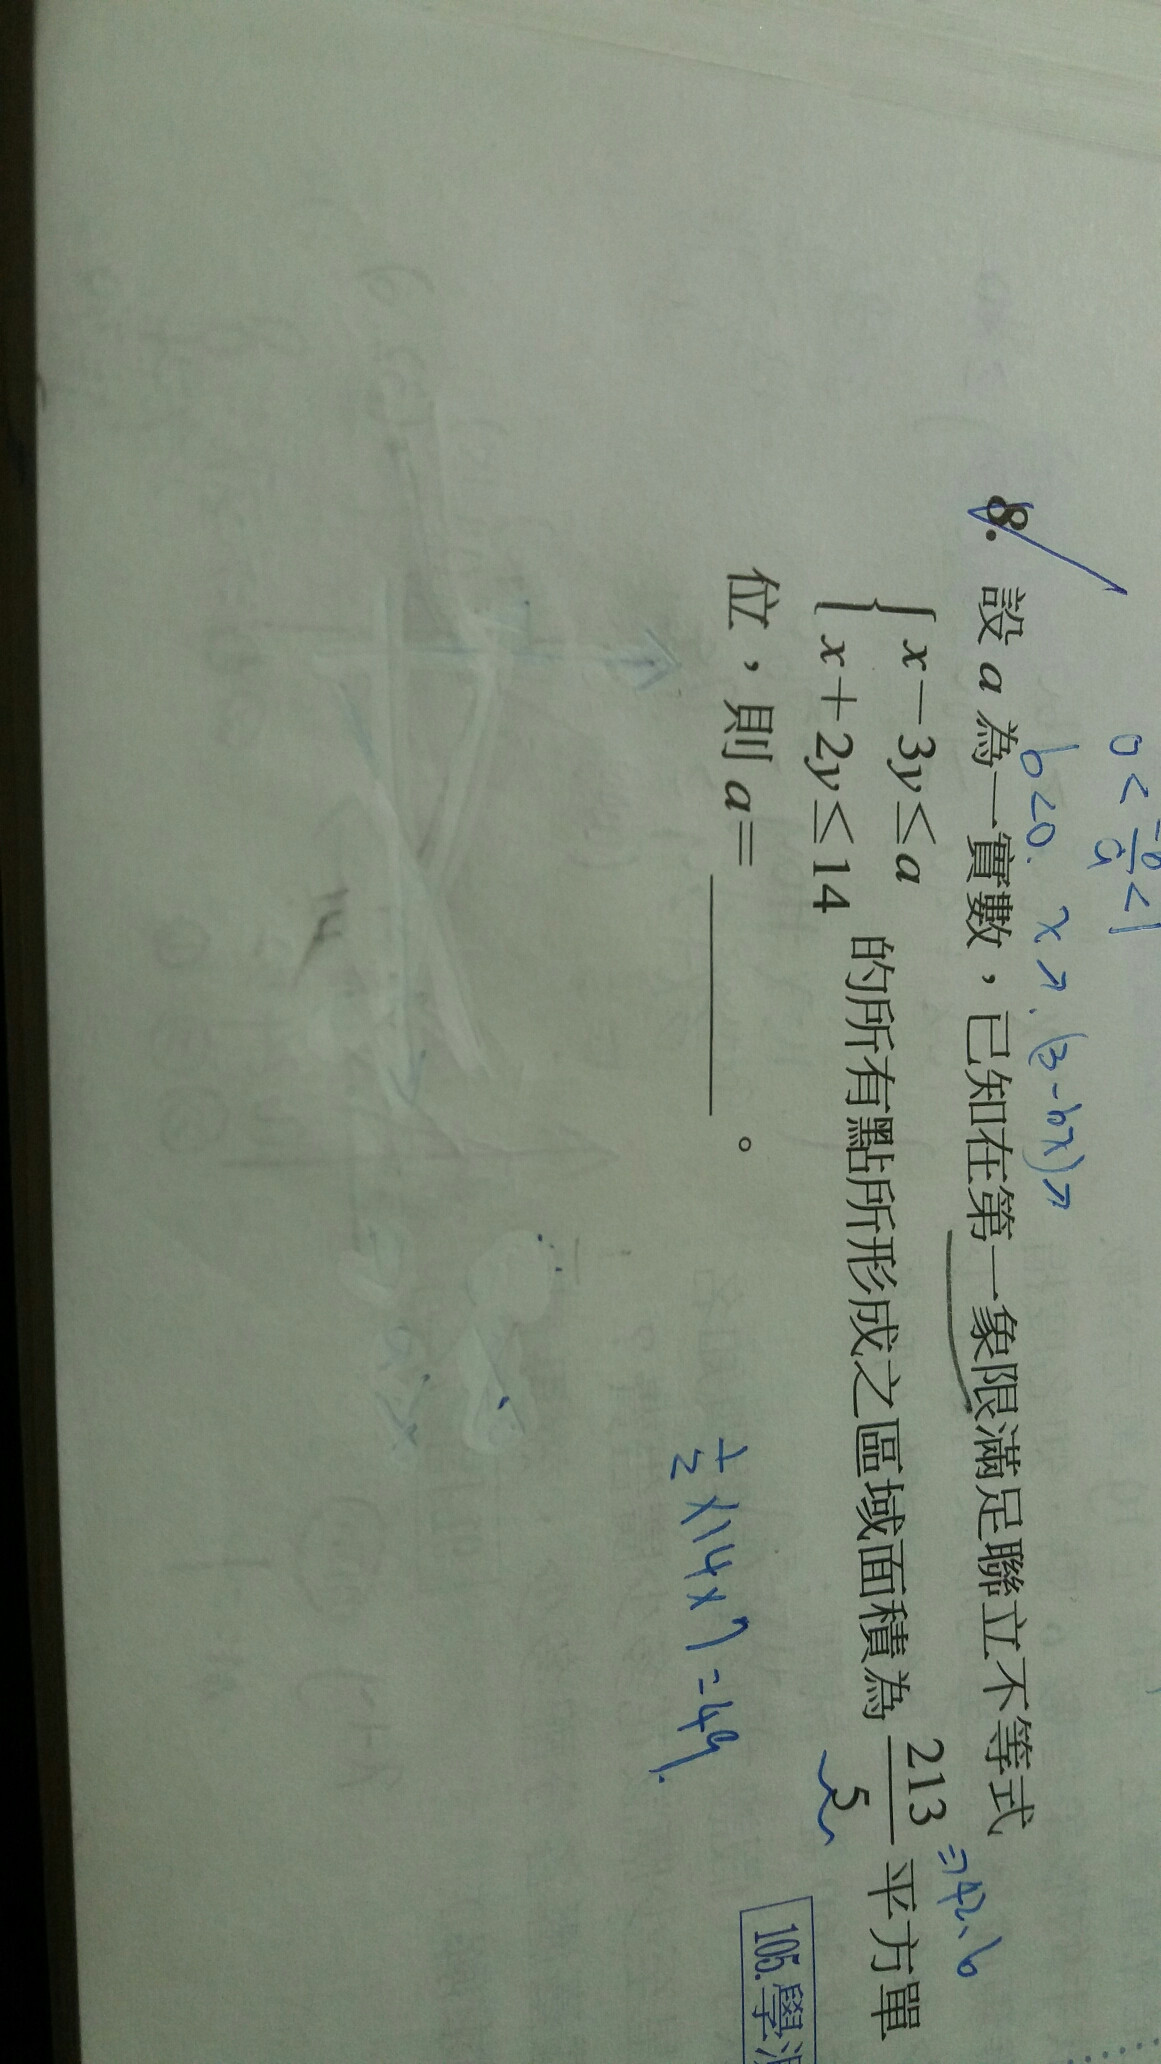 0 < -b/a < 1
b<0. x↗. (3-bx)↗
8. 設 a 為一實數，已知在第一象限滿足聯立不等式
{ x－3y≤a
x＋2y≤14 的所有點所形成之區域面積為 213/5 平方單
=42.6
位，則 a=________。
1/2 x14x7=49.
105.學測